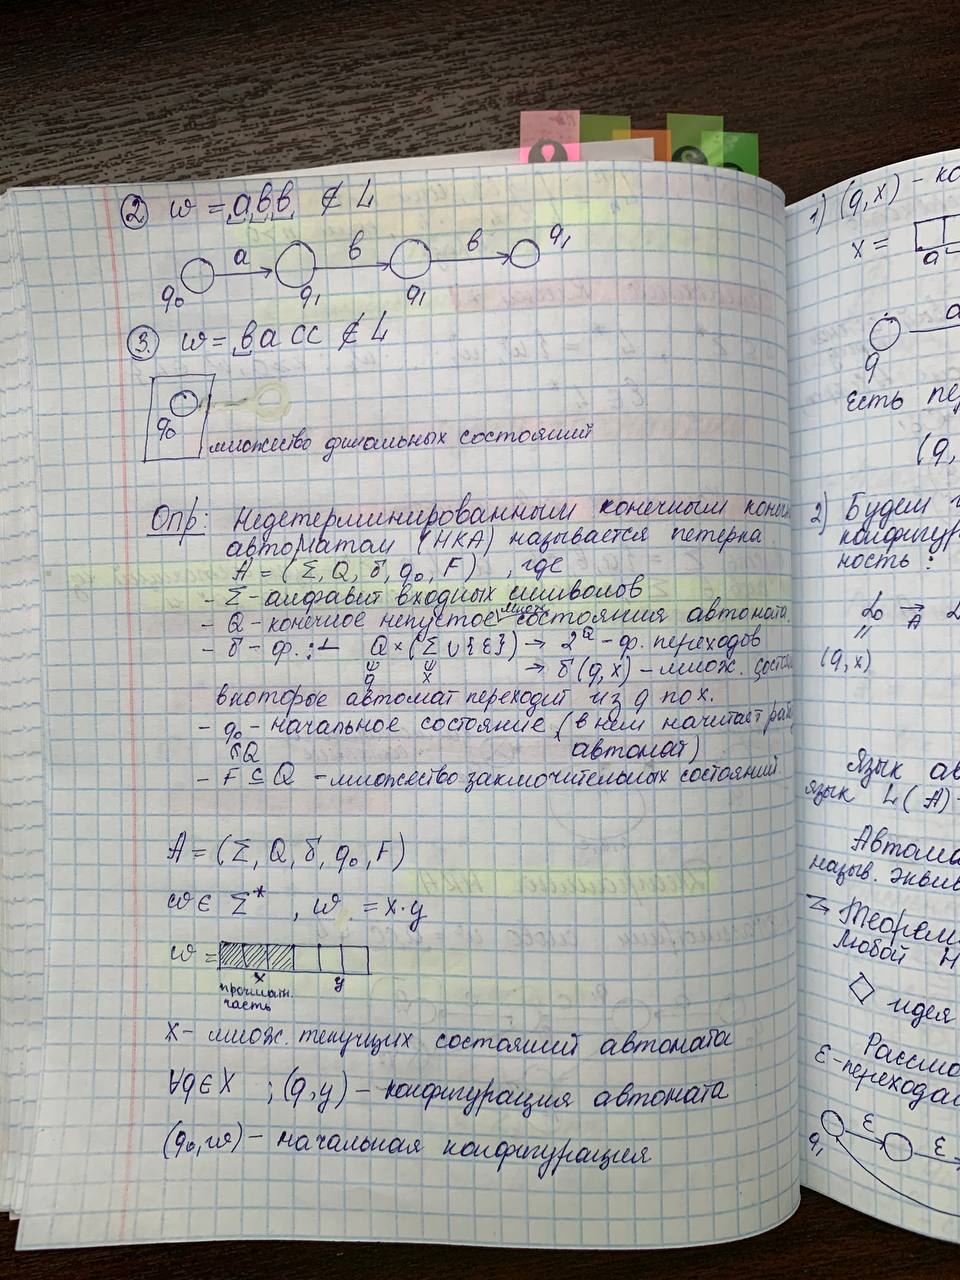 ② w = авв ∉ L
a в в
q₀ q₁ q₁ q₁
③ w = васс ∉ L
q₀
множество финальных состояний
Опр: Недетерминированным конечным
автоматом (НКА) называется петерка
A = (Σ, Q, δ, q₀, F) , где
- Σ - алфавит входных символов
- Q - конечное непустое множ. состояния автомата
- δ - ф. : Q × (Σ ∪ {ε}) → 2^Q - ф. переходов
q x → δ(q, x) - множ.
в которые автомат переходит из q по x.
- q₀ - начальное состояние (в нем начитает
∈Q автомат)
- F ⊆ Q - множество заключительных состояний
A = (Σ, Q, δ, q₀, F)
w ∈ Σ* , w = x·y
w =
x y
прочитан.
часть
X - множ. текущих состояний автомата
∀q∈X ; (q, y) - конфигурация автомата
(q₀, w) - начальная конфигурация
1) (q, x) -
x =
a
q
Есть
(q,
2) Будем
ность :
→ A
(q, x)
Язык
язык L(A) -
назыв.
Любой
идея
ε-перехода
ε ε
q₁